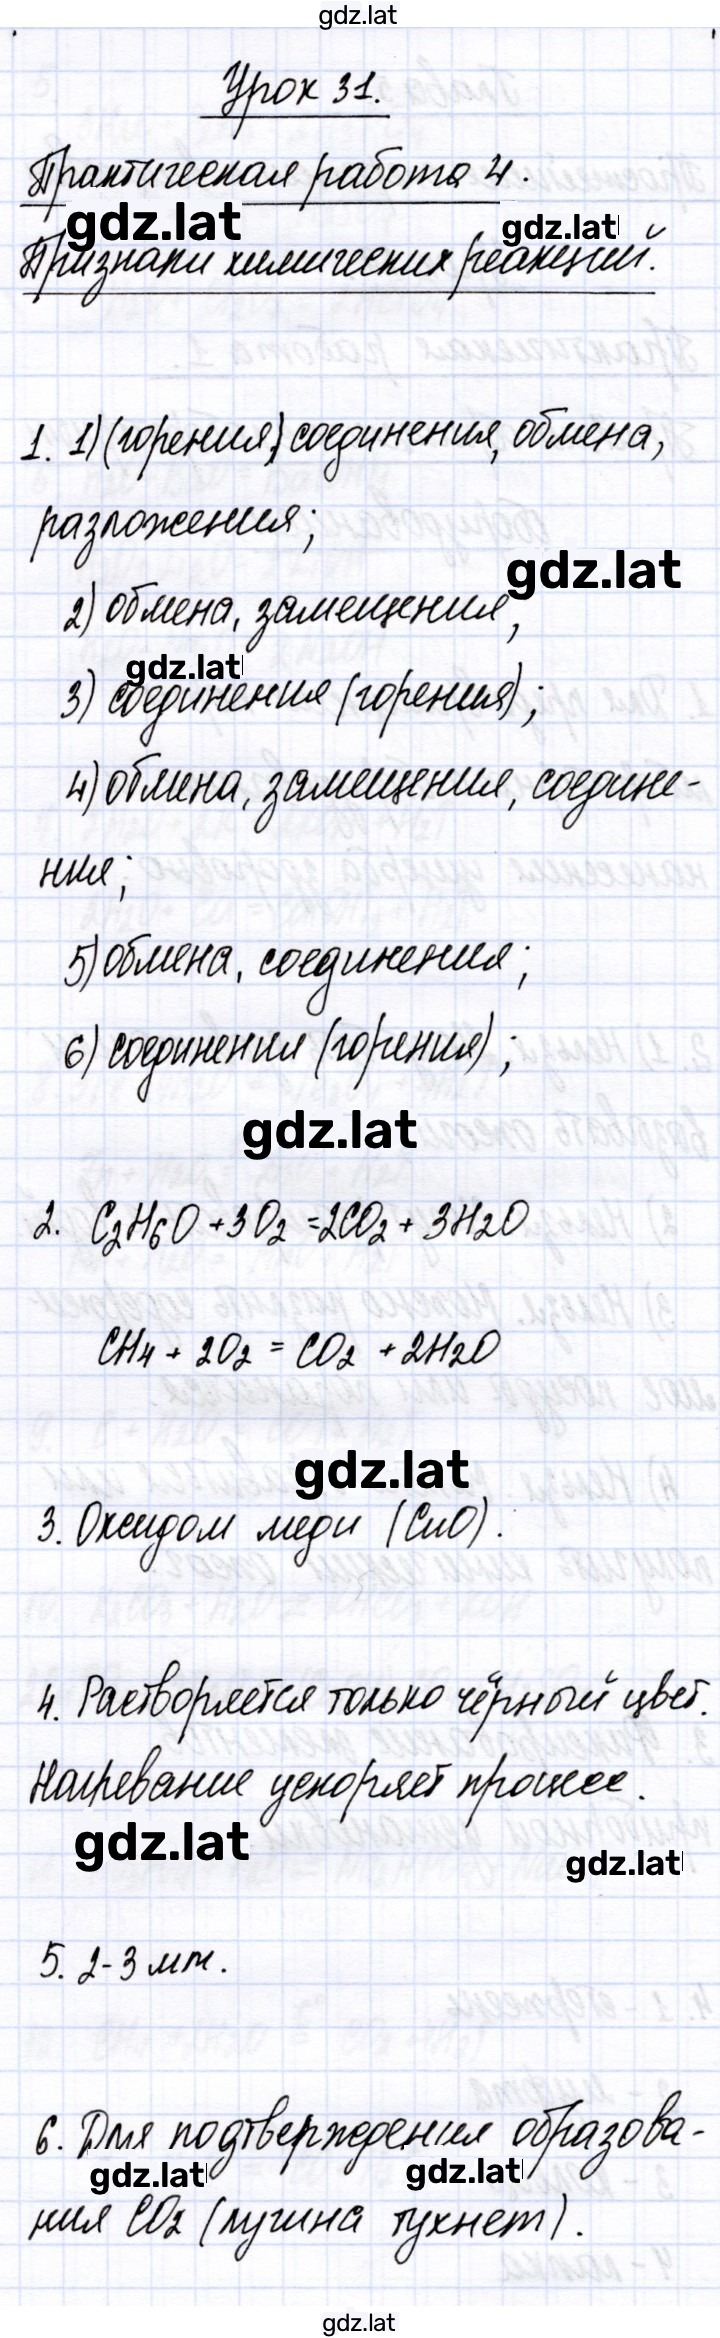 gdz.lat
Урок 31.
Практическая работа 4.
gdz.lat
gdz.lat
Признаки химических реакций.
1. 1) (горения,) соединения, обмена,
разложения;
gdz.lat
2) обмена, замещения,
gdz.lat
3) соединения (горения);
4) обмена, замещения, соедине-
ния;
5) обмена, соединения;
6) соединения (горения);
gdz.lat
2. C₂H₆O + 3O₂ = 2CO₂ + 3H₂O
CH₄ + 2O₂ = CO₂ + 2H₂O
gdz.lat
3. Оксидом меди (CuO).
4. Растворяется только чёрный цвет.
Нагревание ускоряет процесс.
gdz.lat
gdz.lat
5. 2-3 мл.
6. Для подтверждения образова-
gdz.lat
gdz.lat
ния CO₂ (лучина тухнет).
gdz.lat